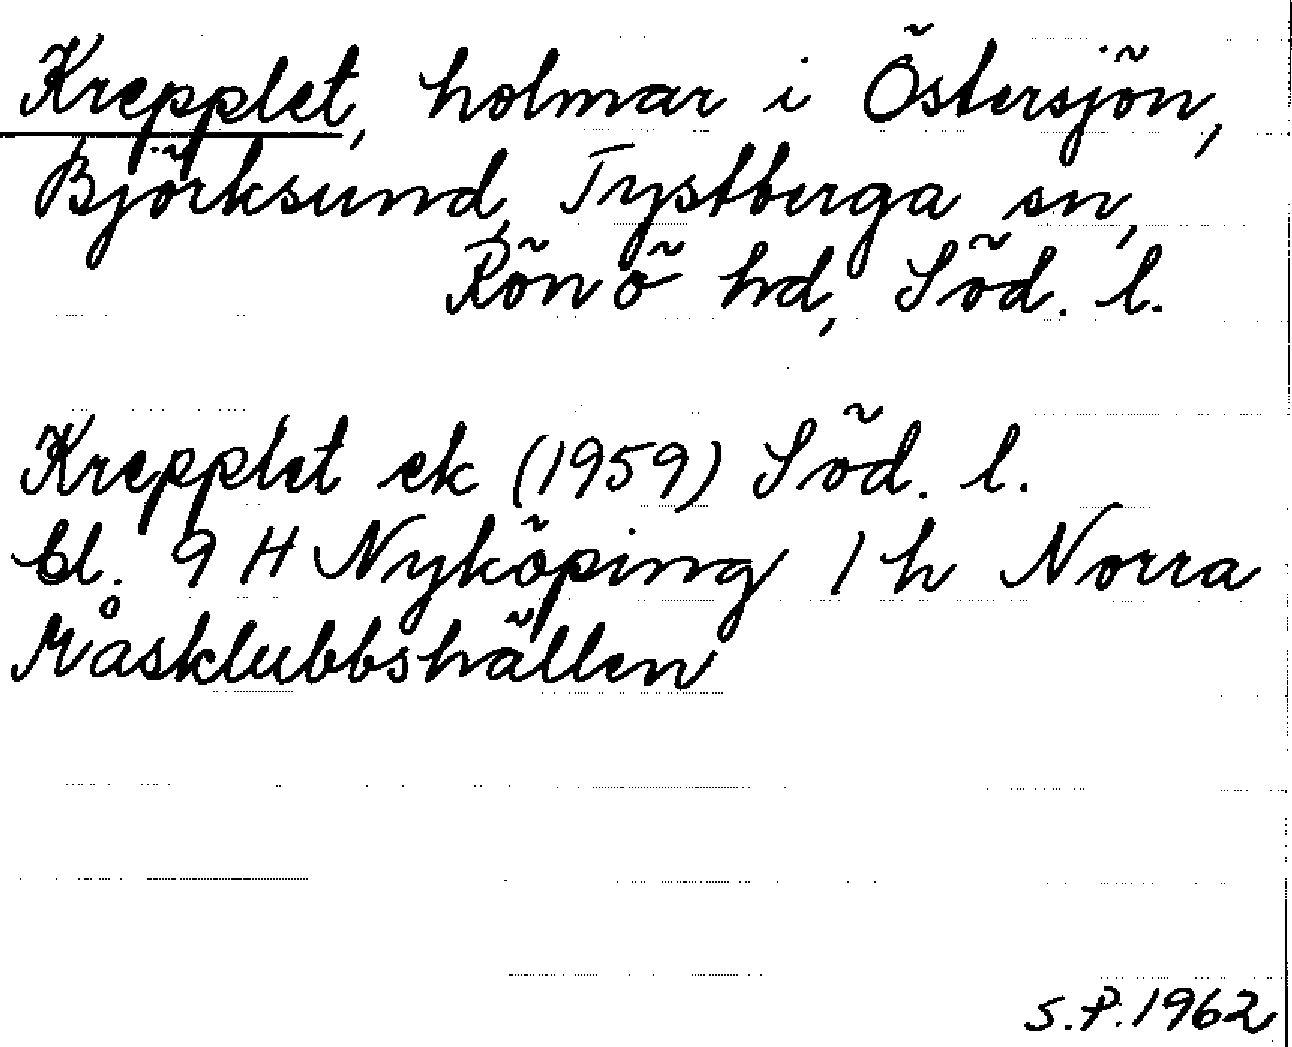 Krepplet, holmar i Östersjön,
Björksund, Tystberga sn,
Rönö hd, Söd. l.
Krepplet ek (1959) Söd. l.
bl. 9 H Nyköping 1 h Norra
Måsklubbshällen
S.P. 1962